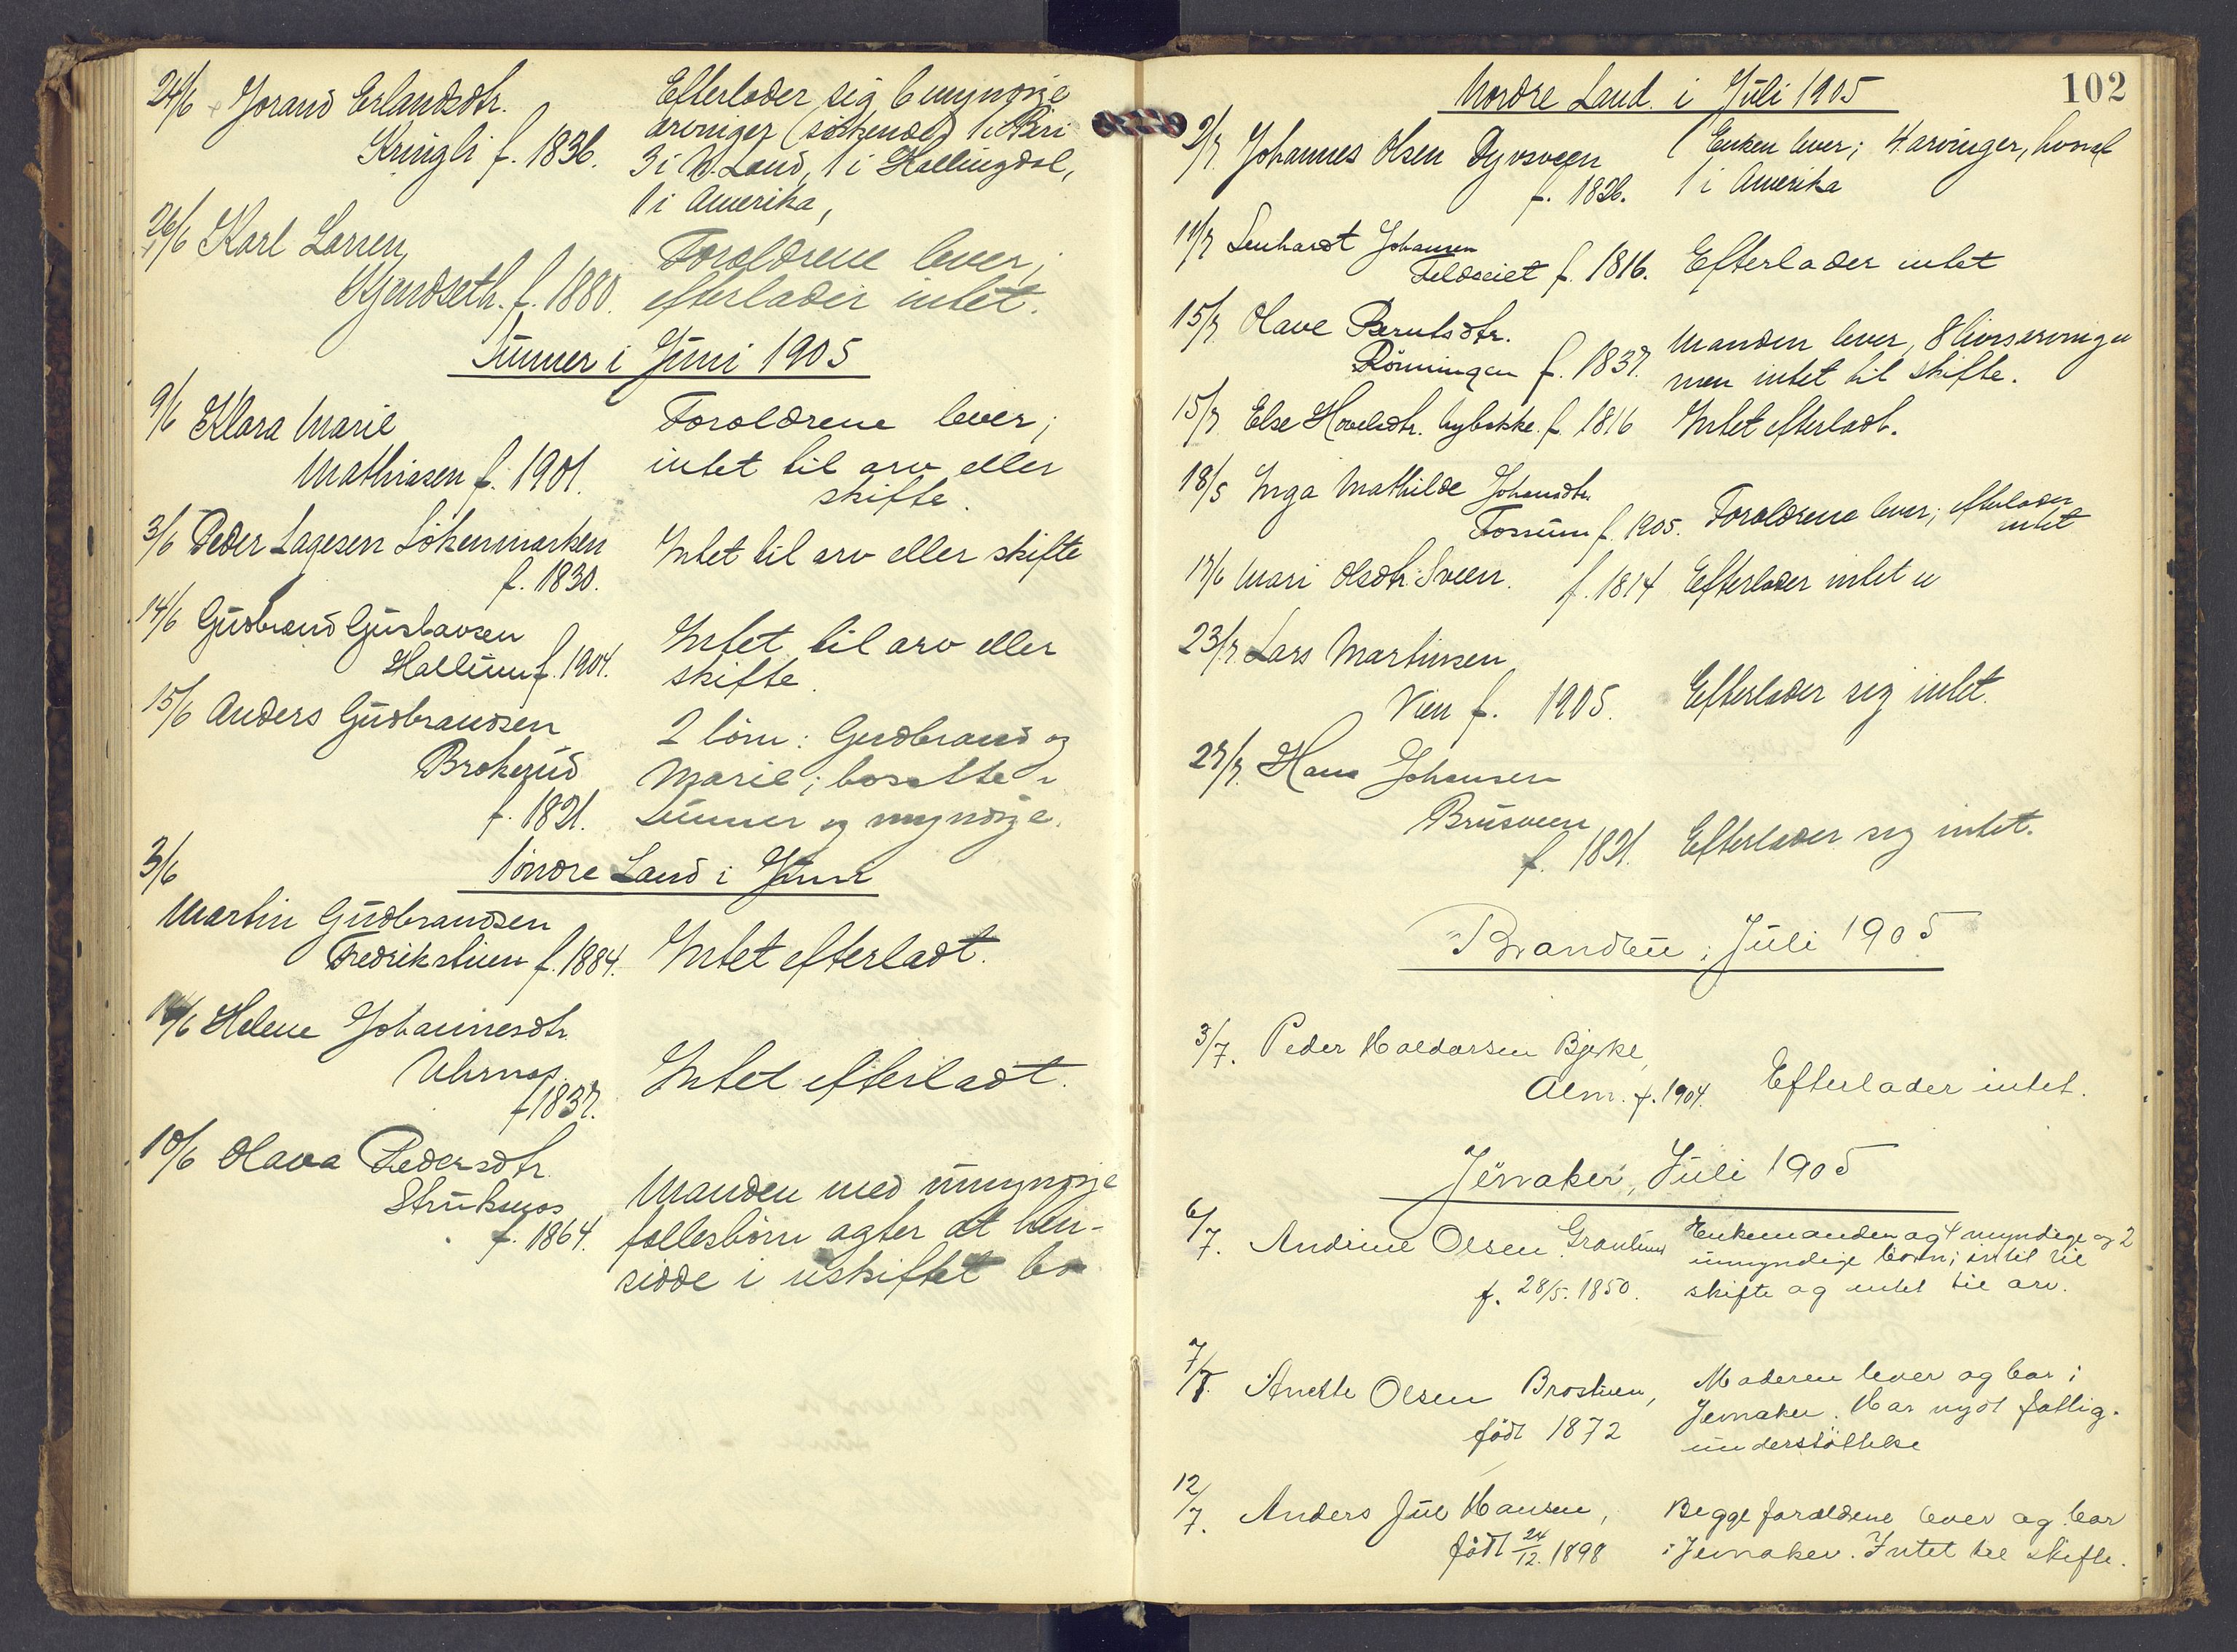 24/6 Jorand Erlandsdtr.
Kringli f. 1836.
Efterlader sig 6 myndige
arvinger (søskende) 1 i Biri
3 i N. Land, 1 i Hallingdal,
1 i Amerika,
26/6 Karl Larsen
f. 1880.
Forældrene lever;
efterlader intet.
Lunner i Juni 1905
9/6 Klara Marie
Mathiasen f. 1901.
Forældrene lever;
intet til arv eller
skifte.
3/6 Peder Lagesen Løkenmarken
f. 1830.
Intet til arv eller skifte
14/6 Gudbrand Gustavsen
Hallum f. 1904.
Intet til arv eller
skifte.
15/6 Anders Gudbrandsen
Brokerud
f. 1821.
2 børn: Gudbrand og
Marie; bosatte i
Lunner og myndige.
Søndre Land i Juni
3/6
Martin Gudbrandsen
Fredrikstuen f. 1884.
Intet efterladt.
/6 Helene Johannesdtr.
f 1837.
Intet efterladt.
10/6 Olava Pedersdtr.
f. 1864.
Manden med umyndige
fellesbørn agter at hen-
sidde i uskiftet bo
102
Nordre Land i Juli 1905
2/7 Johannes Olsen Dyvsveen
f. 1826.
Enken lever; 4 arvinger, hvoraf
1 i Amerika
11/7 Lenhardt Johansen
f. 1816.
Efterlader intet
15/7 Olave Berntsdtr.
Rønningen f. 1837.
Manden lever, 8 livsarvinger
men intet til skifte.
15/7 Else Hovelsdtr. Nybakke f. 1816
Intet efterladt.
18/5 Inga Mathilde Johansdtr.
Fossum f. 1905.
Forældrene lever; efterlader
intet
17/6 Mari Olsdtr. Sveen. f. 1814
Efterlader intet
23/7. Lars Martinsen
Vien f. 1905.
Efterlader sig intet.
27/7. Hans Johansen
Brusveen
f. 1821.
Efterlader sig intet.
Brandbu i Juli 1905.
3/7. Peder Haldorsen Bjerke,
Alm. f. 1904.
Efterlader intet.
Jevnaker, Juli 1905
6/7. Andrine Olsen
f. 28/5. 1850.
Enkemanden og 4 myndige og 2
umyndige børn; intet til
skifte og intet til arv.
7/7. Anette Olsen Brostuen,
født 1872
Moderen lever og bor i
Jevnaker. Har nydt fattig-
understøttelse
12/7. Anders Jul Hansen,
født 24/12. 1898
Begge forældrene lever og bor
i Jevnaker. Intet til skifte.